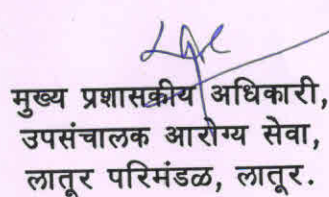 मुख्य प्रशासकीय अधिकारी,
उपसंचालक आरोग्य सेवा,
लातूर परिमंडळ, लातूर.